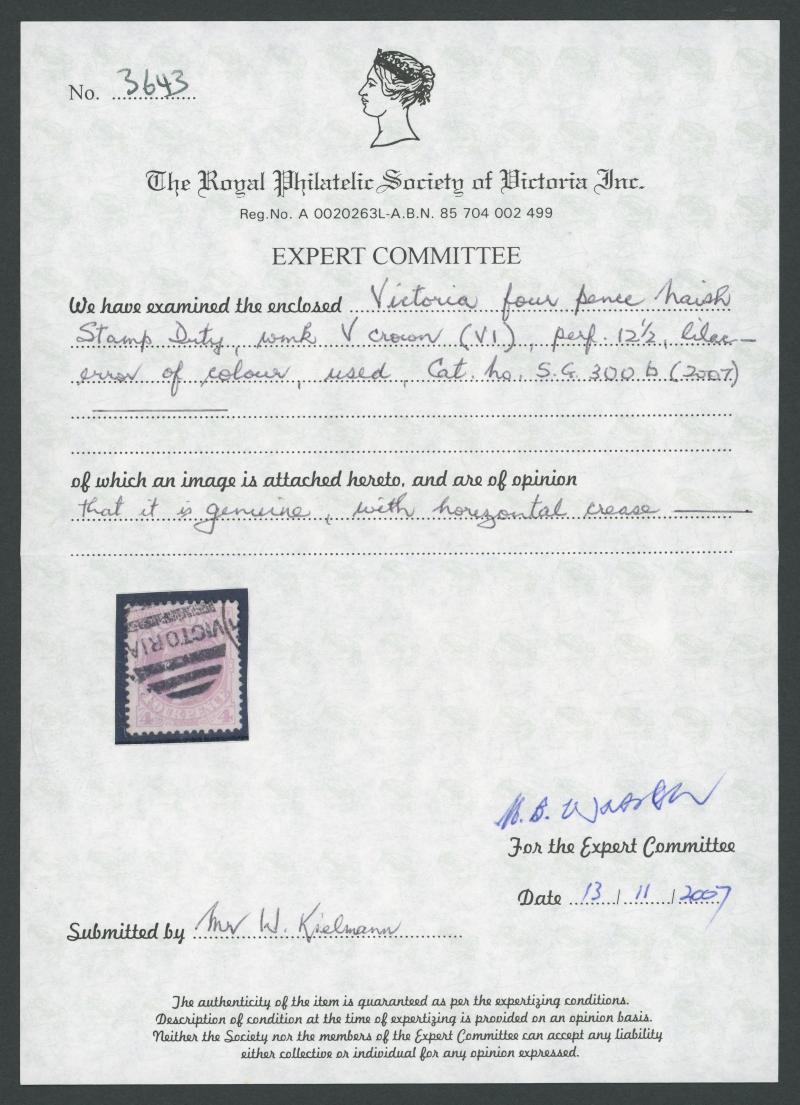 No. 3643
The Royal Philatelic Society of Victoria Inc.
Reg.No. A 0020263L-A.B.N. 85 704 002 499
EXPERT COMMITTEE
We have examined the enclosed Victoria four pence Naish
Stamp Duty, wmk V crown (V1), perf. 12½, lilac—
error of colour, used, Cat. No. S.G. 300 b (2007)
of which an image is attached hereto, and are of opinion
that it is genuine, with horizontal crease —
VICTORIA
4 FOURPENCE 4
For the Expert Committee
Date 13 / 11 / 2007
Submitted by Mr W. Kielmann
The authenticity of the item is guaranteed as per the expertizing conditions.
Description of condition at the time of expertizing is provided on an opinion basis.
Neither the Society nor the members of the Expert Committee can accept any liability
either collective or individual for any opinion expressed.